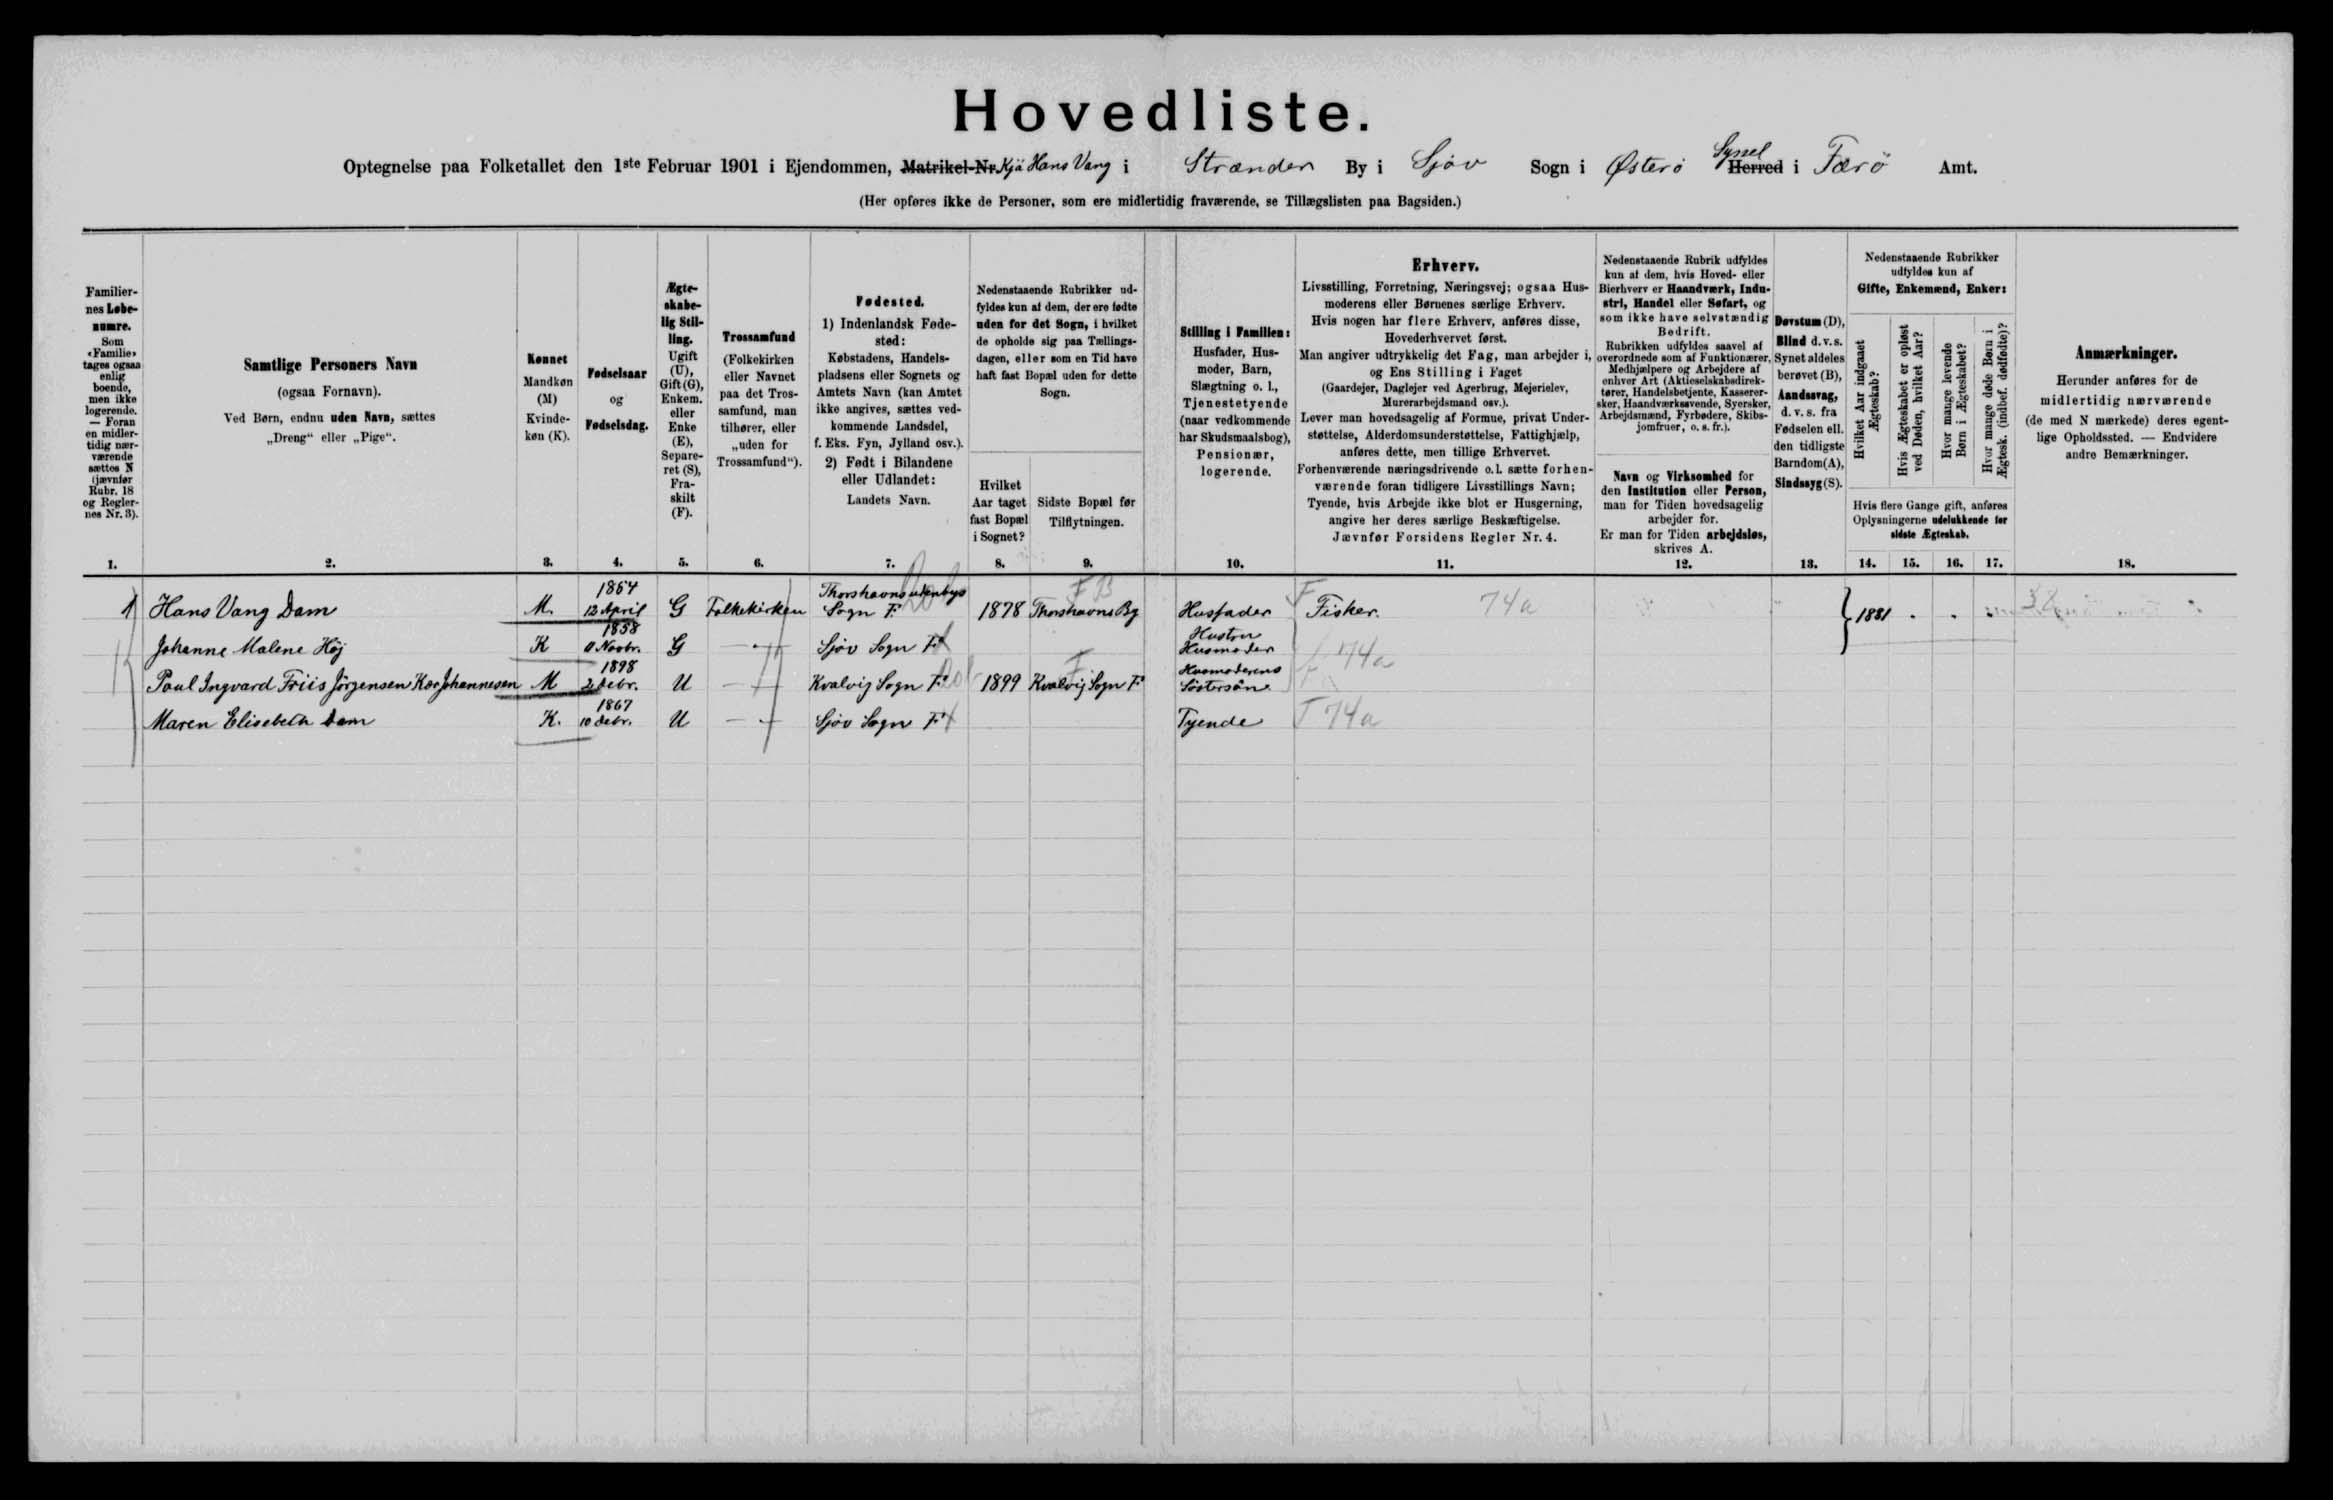 Hovedliste.
Optegnelse paa Folketallet den 1ste Februar 1901 i Ejendommen, Matrikel-Nr. Kjä Hans Vang i Strænder By i Sjóv Sogn i Østerö Herred Syssel i Færö Amt.
(Her opføres ikke de Personer, som ere midlertidig fraværende, se Tillægslisten paa Bagsiden.)
Familier-
nes Løbe-
numre.
Som
«Familie»
tages ogsaa
enlig
boende,
men ikke
logerende.
— Foran
en midler-
tidig nær-
værende
sættes N
(jævnfør
Rubr. 18
og Regler-
nes Nr. 3).
1.
Samtlige Personers Navn
(ogsaa Fornavn).
Ved Børn, endnu uden Navn, sættes
„Dreng“ eller „Pige“.
2.
Kønnet
Mandkøn
(M)
Kvinde-
køn (K).
3.
Fødselsaar
og
Fødselsdag.
4.
Ægte-
skabe-
lig Stil-
ling.
Ugift
(U),
Gift (G),
Enkem.
eller
Enke
(E),
Separe-
ret (S),
Fra-
skilt
(F).
5.
Trossamfund
(Folkekirken
eller Navnet
paa det Tros-
samfund, man
tilhører, eller
„uden for
Trossamfund“).
6.
Fødested.
1) Indenlandsk Føde-
sted:
Købstadens, Handels-
pladsens eller Sognets og
Amtets Navn (kan Amtet
ikke angives, sættes ved-
kommende Landsdel,
f. Eks. Fyn, Jylland osv.).
2) Født i Bilandene
eller Udlandet:
Landets Navn.
7.
Nedenstaaende Rubrikker ud-
fyldes kun af dem, der ere fødte
uden for det Sogn, i hvilket
de opholde sig paa Tællings-
dagen, eller som en Tid have
haft fast Bopæl uden for dette
Sogn.
Hvilket
Aar taget
fast Bopæl
i Sognet?
8.
Sidste Bopæl før
Tilflytningen.
9.
Stilling i Familien:
Husfader, Hus-
moder, Barn,
Slægtning o. l.,
Tjenestetyende
(naar vedkommende
har Skudsmaalsbog),
Pensionær,
logerende.
10.
Erhverv.
Livsstilling, Forretning, Næringsvej; ogsaa Hus-
moderens eller Børnenes særlige Erhverv.
Hvis nogen har flere Erhverv, anføres disse,
Hovederhvervet først.
Man angiver udtrykkelig det Fag, man arbejder i,
og Ens Stilling i Faget
(Gaardejer, Daglejer ved Agerbrug, Mejerielev,
Murerarbejdsmand osv.).
Lever man hovedsagelig af Formue, privat Under-
støttelse, Alderdomsunderstøttelse, Fattighjælp,
anføres dette, men tillige Erhvervet.
Forhenværende næringsdrivende o. l. sætte forhen-
værende foran tidligere Livsstillings Navn;
Tyende, hvis Arbejde ikke blot er Husgerning,
angive her deres særlige Beskæftigelse.
Jævnfør Forsidens Regler Nr. 4.
11.
Nedenstaaende Rubrik udfyldes
kun af dem, hvis Hoved- eller
Bierhverv er Haandværk, Indu-
stri, Handel eller Søfart, og
som ikke have selvstændig
Bedrift.
Rubrikken udfyldes saavel af
overordnede som af Funktionærer,
Medhjælpere og Arbejdere af
enhver Art (Aktieselskabsdirek-
tører, Handelsbetjente, Kasserer-
sker, Haandværkssvende, Syersker,
Arbejdsmænd, Fyrbødere, Skibs-
jomfruer, o. s. fr.).
Navn og Virksomhed for
den Institution eller Person,
man for Tiden hovedsagelig
arbejder for.
Er man for Tiden arbejdsløs,
skrives A.
12.
Døvstum (D),
Blind d. v. s.
Synet aldeles
berøvet (B),
Aandssvag,
d. v. s. fra
Fødselen ell.
den tidligste
Barndom (A),
Sindssyg (S).
13.
Nedenstaaende Rubrikker
udfyldes kun af
Gifte, Enkemænd, Enker:
Hvilket Aar indgaaet
Ægteskab?
Hvis Ægteskabet er opløst
ved Døden, hvilket Aar?
Hvor mange levende
Børn i Ægteskabet?
Hvor mange døde Børn i
Ægtesk. (indbef. dødfødte)?
Hvis flere Gange gift, anføres
Oplysningerne udelukkende for
sidste Ægteskab.
14. 15. 16. 17.
Anmærkninger.
Herunder anføres for de
midlertidig nærværende
(de med N mærkede) deres egent-
lige Opholdssted. — Endvidere
andre Bemærkninger.
18.
1 Hans Vang Dam M. 1854 12 April G Folkekirken Thorshavns utenbys Sogn F. 1878 Thorshavns Bg Husfader Fisker. 74a 1881
F B
F
Johanne Malene Höj K 1858 11 Novbr. G — Sjóv Sogn F. Hustru Husmoder 74a
Poul Ingvard Friis Jörgensen Kær Johannesen M 1898 2 Debr. U — Kvalvig Sogn F. 1899 Kvalvig Sogn F. Husmoderens Söstersön
Maren Elisebeth Dam K. 1867 10 Debr. U — Sjóv Sogn F. Tyende T 74a